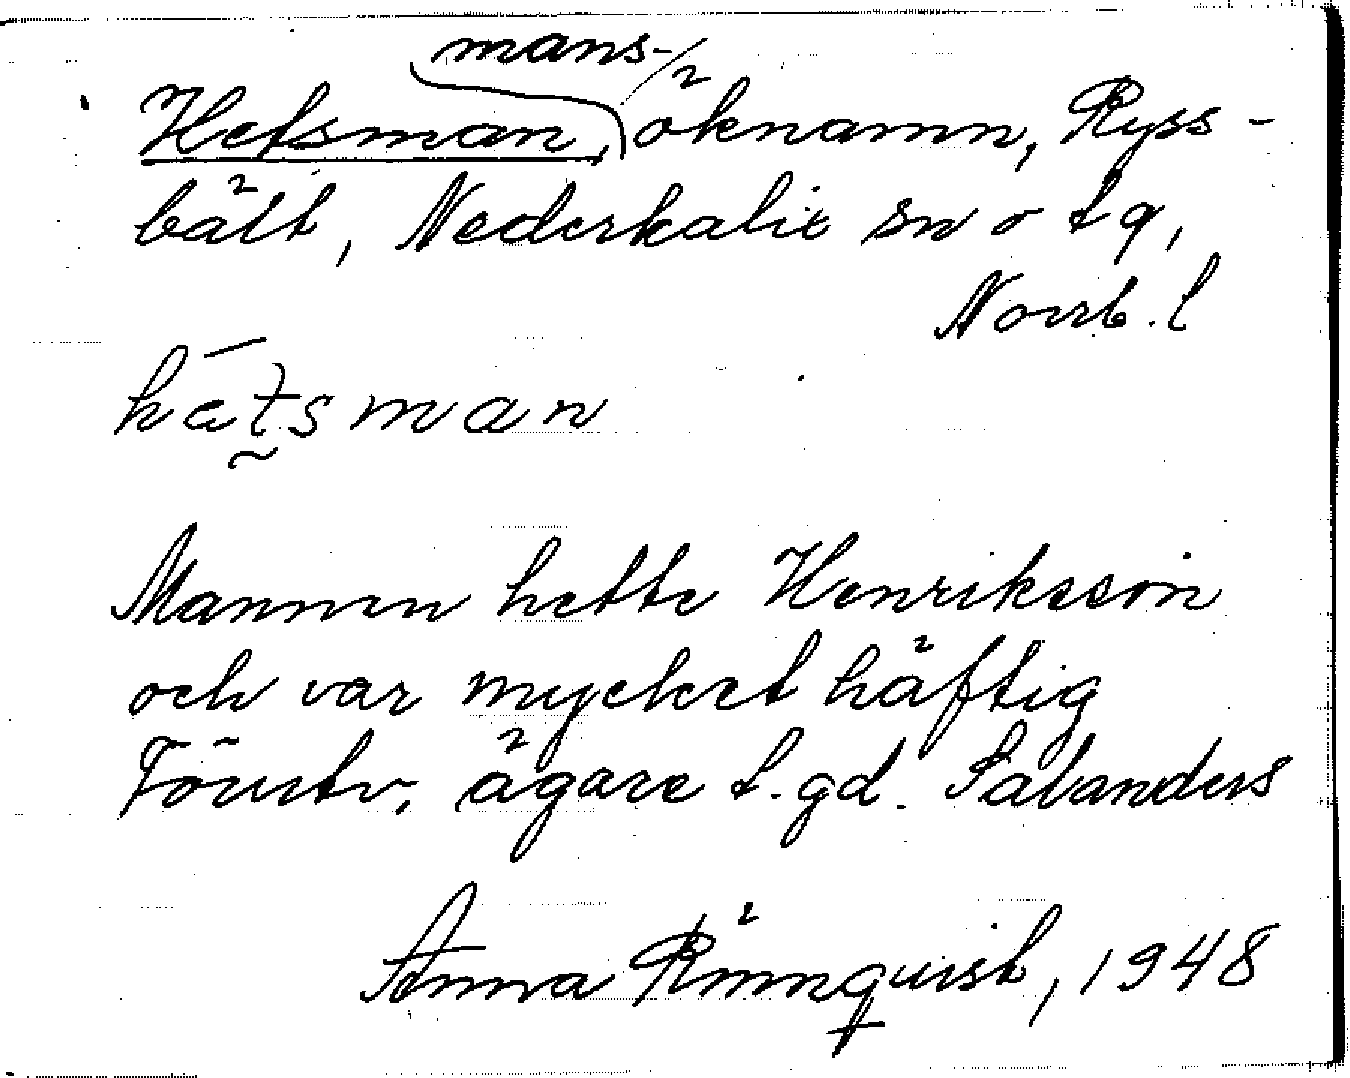 mans-/
Hetsman, öknamn, Ryss-
bält, Nederkalix sn o tg,
Norrb. l
hetsman
Mannen hette Henriksson
och var mycket häftig
Förutv. ägare t. gd. Salanders
Anna Rönnquist, 1948